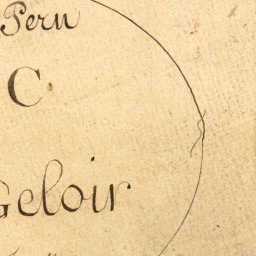 Peru
C
Geloir